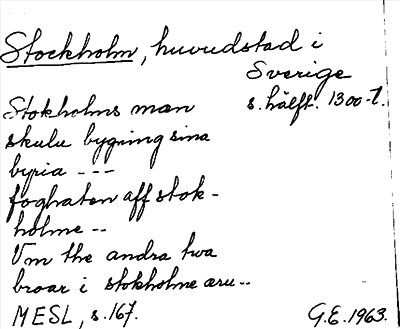 Stockholm, huvudstad i
Sverige
s. hälft. 1300-t.
Stokholms man
skulu bygning sina
byria ---
foghaten aff stok-
holme --
Vm the andra twa
broar i stokholme æru --
MESL, s. 167.
G.E. 1963.